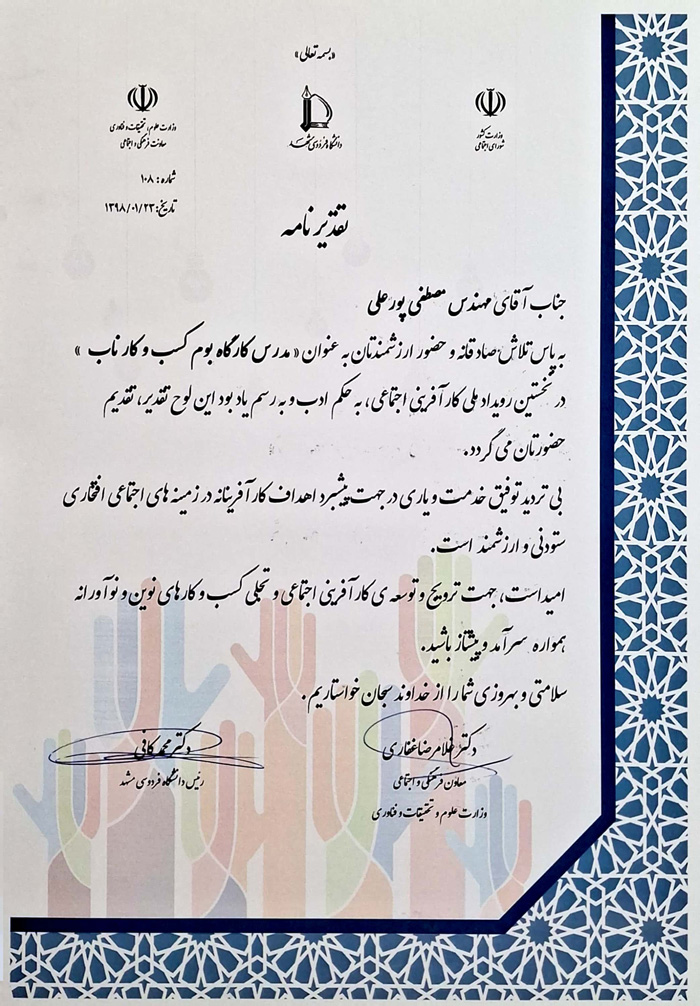 «بسمه تعالی»
وزارت کشور
شورای اجتماعی
دانشگاه فردوسی مشهد
وزارت علوم، تحقیقات و فناوری
معاونت فرهنگی و اجتماعی
شماره: ۱۰۸
تاریخ: ۱۳۹۸/۰۱/۲۳
تقدیر نامه
جناب آقای مهندس مصطفی پورعلی
به پاس تلاش صادقانه و حضور ارزشمندتان به عنوان «مدرس کارگاه بوم کسب و کار ناب »
در نخستین رویداد ملی کارآفرینی اجتماعی، به حکم ادب و به رسم یاد بود این لوح تقدیر، تقدیم
حضورتان می گردد.
بی تردید توفیق خدمت و یاری در جهت پیشبرد اهداف کارآفرینانه در زمینه های اجتماعی افتخاری
ستودنی و ارزشمند است.
امید است، جهت ترویج و توسعه ی کارآفرینی اجتماعی و تجلی کسب و کارهای نوین و نوآورانه
همواره سرآمد و پیشتاز باشید.
سلامتی و بهروزی شما را از خداوند سبحان خواستاریم.
دکتر غلامرضا غفاری
معاون فرهنگی و اجتماعی
وزارت علوم و تحقیقات و فناوری
دکتر محمد کافی
رئیس دانشگاه فردوسی مشهد